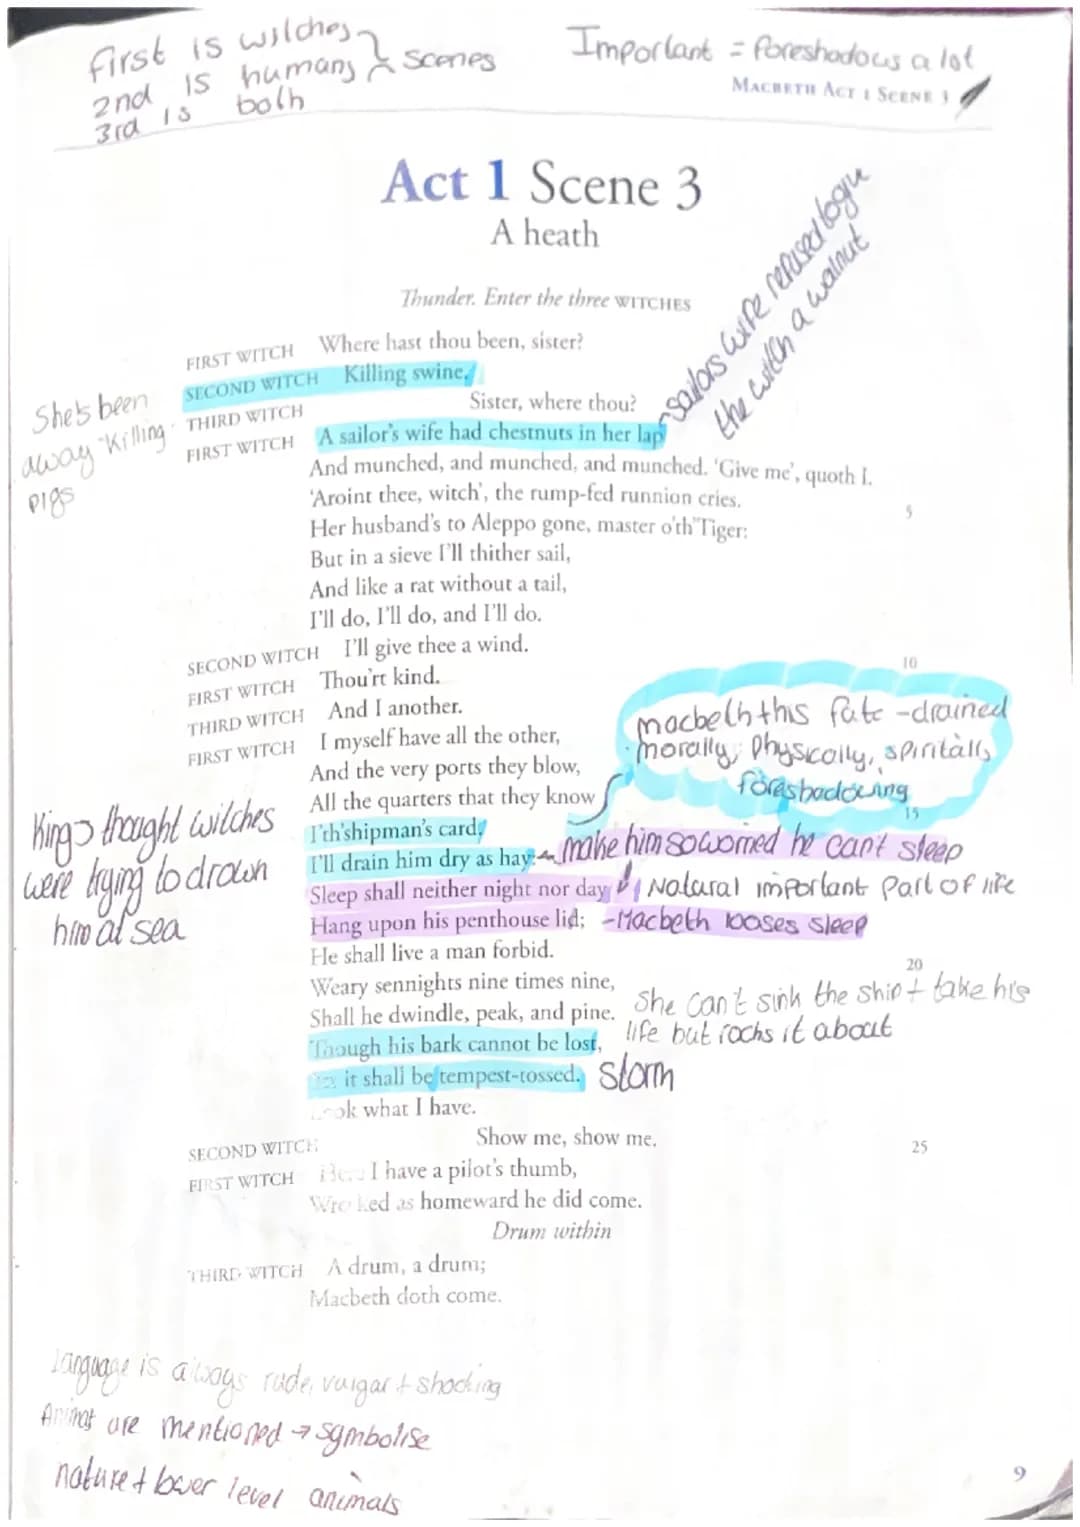 first is witches
2nd is humans } scenes
3rd is both
Important = foreshadows a lot
MACBETH ACT 1 SCENE 3
Act 1 Scene 3
A heath
Thunder. Enter the three WITCHES
sailors wife refused
the witch a walnut
FIRST WITCH Where hast thou been, sister?
SECOND WITCH Killing swine,
THIRD WITCH Sister, where thou?
FIRST WITCH A sailor's wife had chestnuts in her lap
She's been
away Killing
pigs
And munched, and munched, and munched. 'Give me', quoth I.
'Aroint thee, witch', the rump-fed runnion cries.
5
Her husband's to Aleppo gone, master o'th'Tiger:
But in a sieve I'll thither sail,
And like a rat without a tail,
I'll do, I'll do, and I'll do.
SECOND WITCH I'll give thee a wind.
10
FIRST WITCH Thou'rt kind.
THIRD WITCH And I another.
FIRST WITCH I myself have all the other,
And the very ports they blow,
All the quarters that they know
15
I'th'shipman's card,
macbeth this fate - drained
morally, Physically, spiritally
foreshadowing
I'll drain him dry as hay: make him so worried he can't sleep
Sleep shall neither night nor day Natural important Part of life
Hang upon his penthouse lid; - Macbeth looses sleep
King thought witches
were trying to drown
him at sea
He shall live a man forbid.
20
Weary sennights nine times nine,
Shall he dwindle, peak, and pine.
She can't sink the ship + take his
life but rocks it about
Though his bark cannot be lost,
it shall be tempest-tossed. storm
what I have.
SECOND WITCH Show me, show me.
25
FIRST WITCH I have a pilot's thumb,
Wrecked as homeward he did come.
Drum within
THIRD WITCH A drum, a drum;
Macbeth doth come.
Language is always rude, vulgar + shocking
are mentioned → symbolise
nature + lower level animals
9